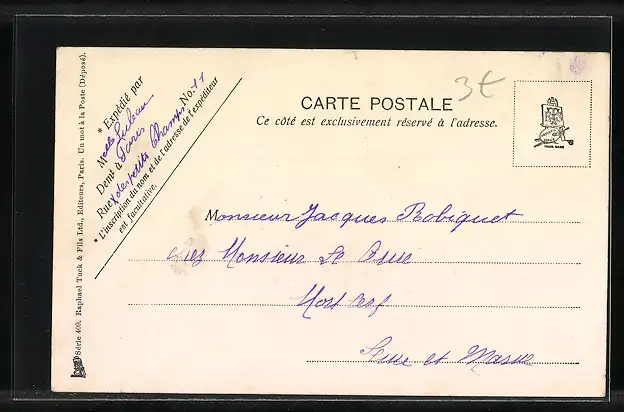 * Expédié par
Melle Juleau
Demt à Paris
Rue des petits Champs No. 11
* L'inscription du nom et de l'adresse de l'expéditeur
est facultative.
3 €
CARTE POSTALE
Ce côté est exclusivement réservé à l'adresse.
TRADE MARK
Monsieur Jacques Robiquet
chez Monsieur Le
Seine et Marne
Série 400. Raphael Tuck & Fils Ltd., Editeurs, Paris. Un mot à la Poste (Déposé).